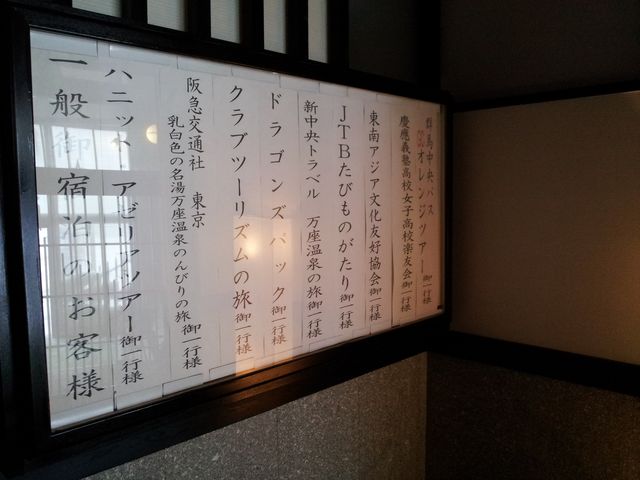 群馬中央バス
オレンジツアー御一行様
慶應義塾高校女子高校楽友会御一行様
東南アジア文化友好協会御一行様
JTBたびものがたり御一行様
新中央トラベル 万座温泉の旅御一行様
ドラゴンズパック御一行様
クラブツーリズムの旅御一行様
阪急交通社 東京
乳白色の名湯万座温泉のんびりの旅御一行様
ハニット・アゼリアツアー御一行様
一般御宿泊のお客様